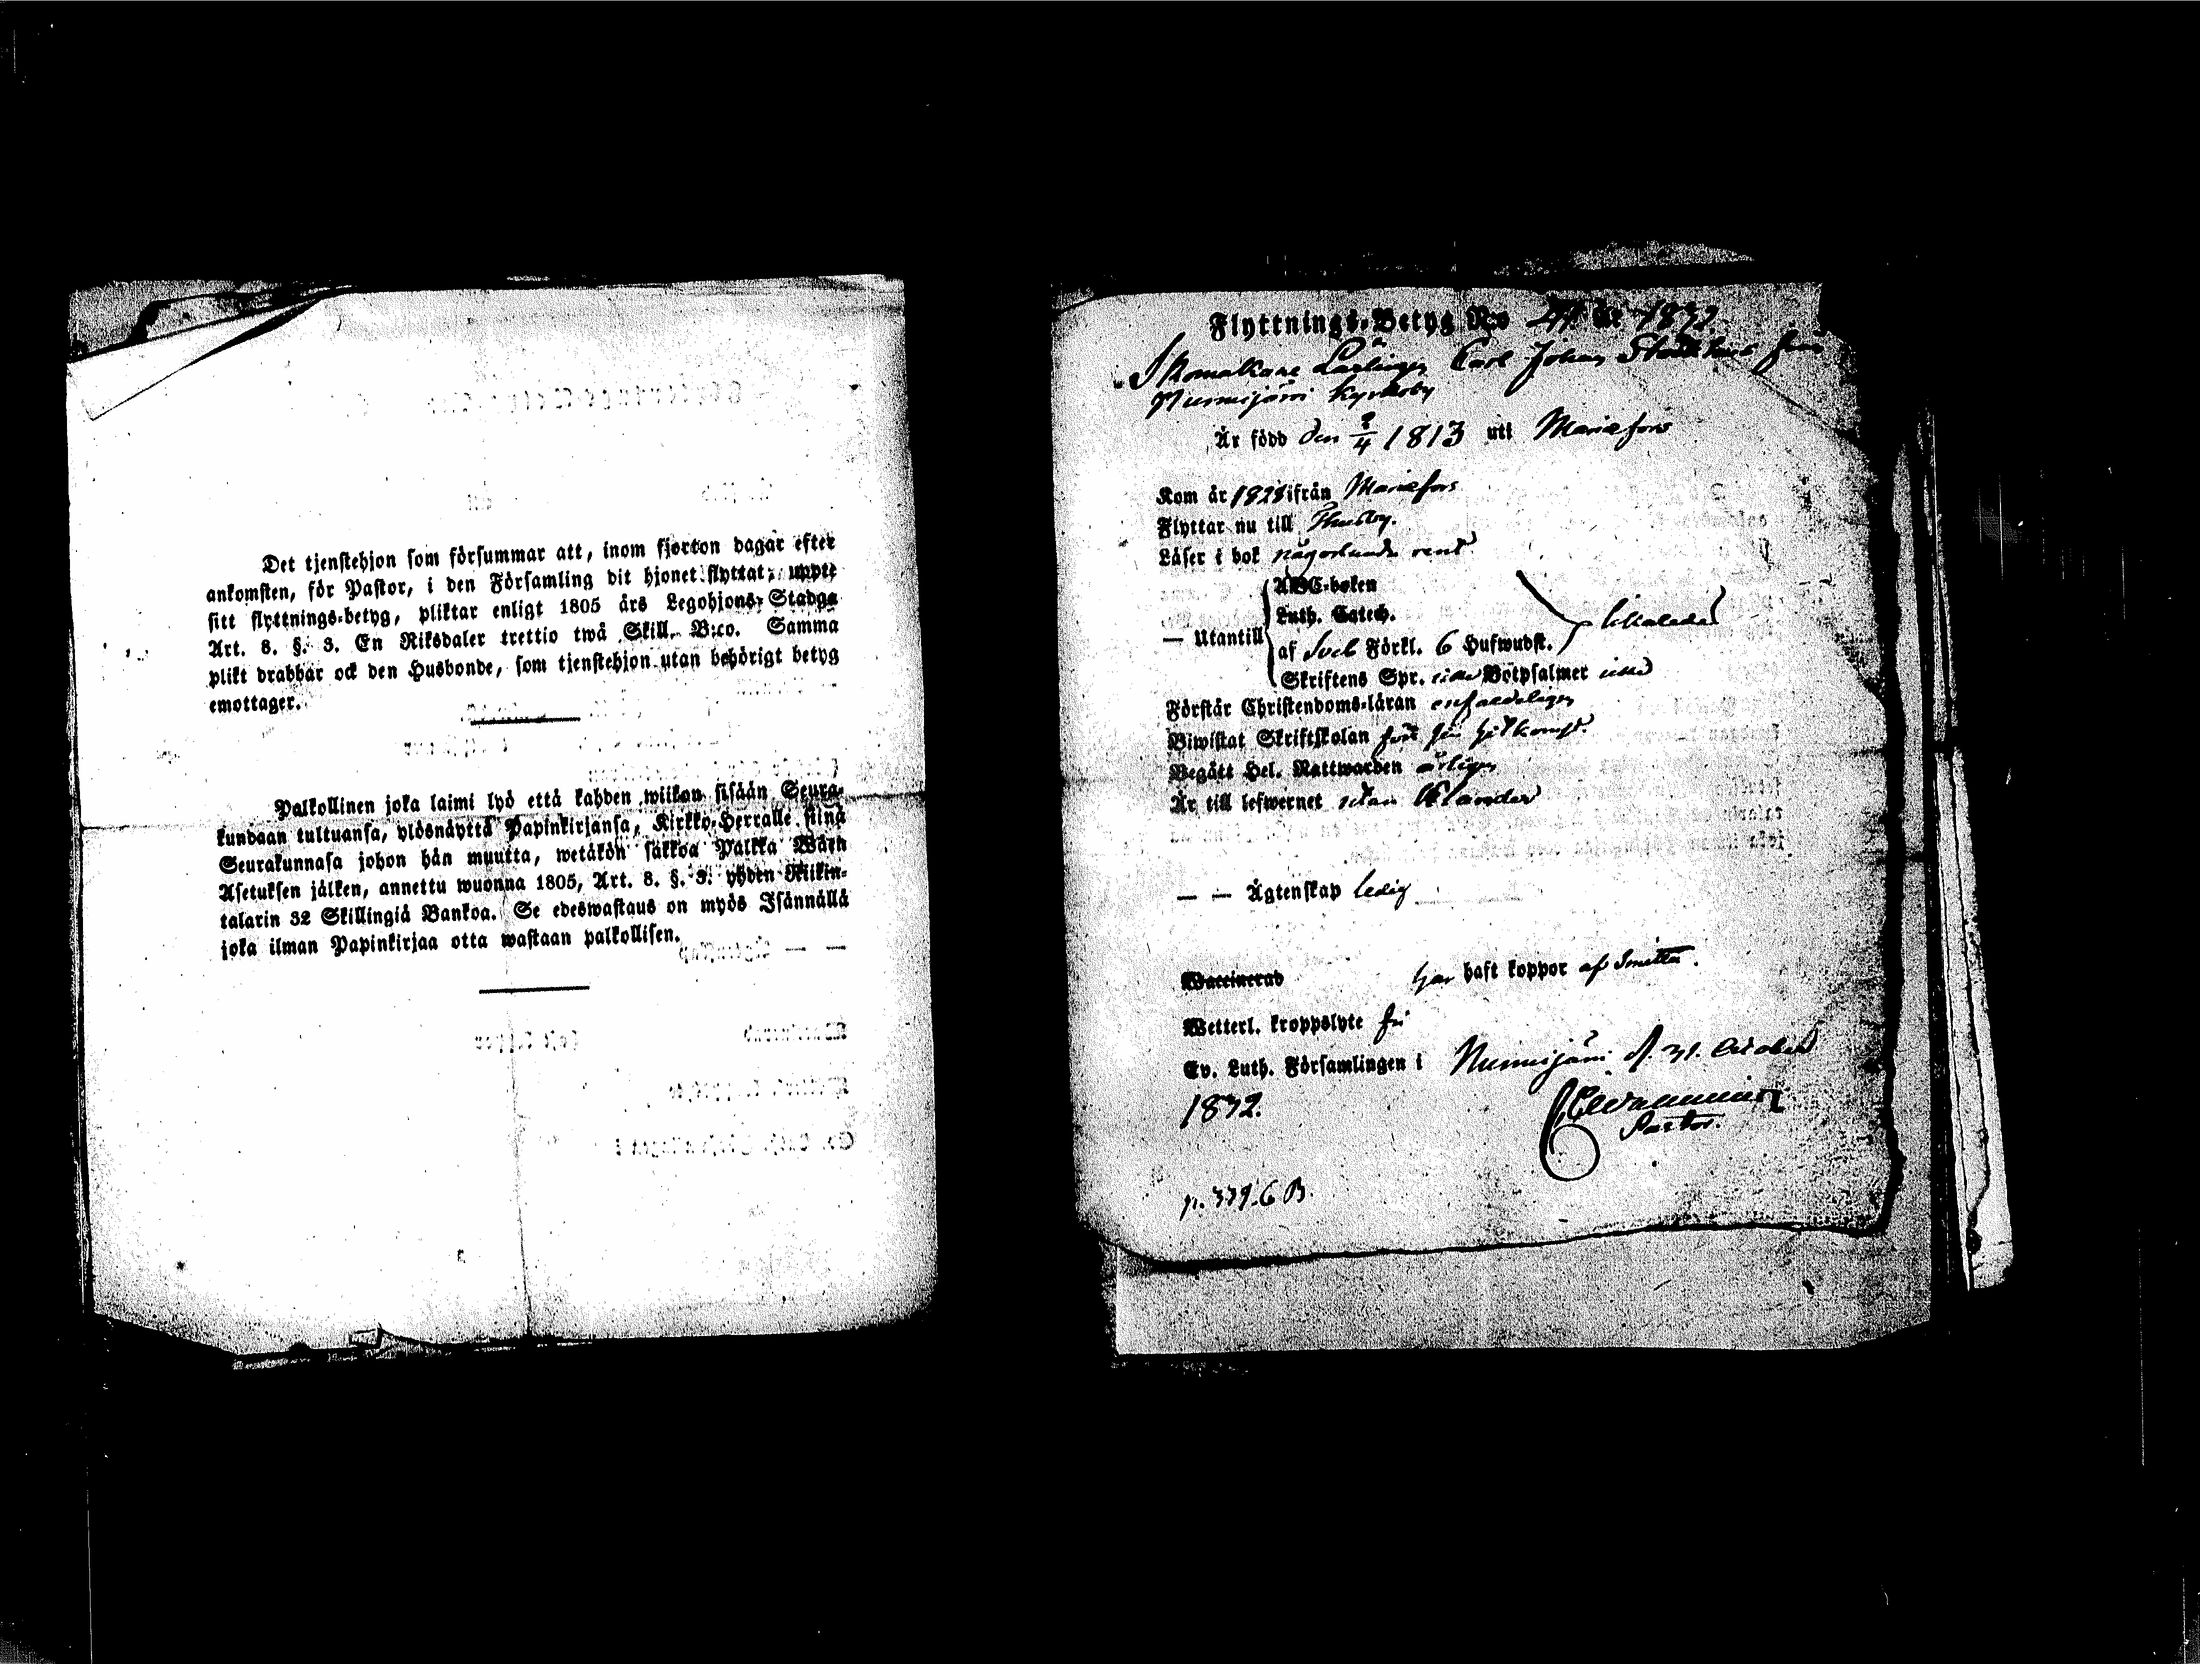 Det tjenstehjon som försummar att, inom fjorton dagar efter
ankomsten, för Pastor, i den Församling dit hjonet flyttat, uppte
sitt flyttnings-betyg, pliktar enligt 1805 års Legohjons-Stadga
Art. 8. §. 3. En Riksdaler trettio twå Skill. B:co. Samma
plikt drabbar ock den Husbonde, som tjenstehjon utan behörigt betyg
emottager.
Palkollinen joka laimi lyö että kahden wiikon sisään Seura-
kundaan tultuansa, ylösnäyttä Papinkirjansa, Kirkko-Herralle siinä
Seurakunnasa johon hän muutta, wetäkön sakkoa Palkka Wäen
Asetuksen jälken, annettu wuonna 1805, Art. 8. §. 3. yhden Riikin-
talarin 32 Skillingiä Bankoa. Se edeswastaus on myös Isännällä
joka ilman Papinkirjaa otta wastaan palkollisen.
Flyttnings-Betyg N:o år 1832
Skomakare Lärlingen Carl Johan från
Nurmijärvi Kyrkoby
Är född den 2/4 1813 uti Mariefors
Kom år 1828 ifrån Mariefors
Flyttar nu till Thusby.
Läser i bok någorlunda rent
ABC-boken
Luth. Catech.
— Utantill af Sveb Förkl. 6 Hufwudst.
Skriftens Spr. Botpsalmer
Förstår Christendoms-läran enfaldeligen
Biwistat Skriftskolan för sin hitkomst.
Begått Hel. Nattwarden årligen
Är till lefwernet utan klander
— — Ägtenskap ledig
Waccinerad har haft koppor af Smitta.
Wetterl. kroppslyte fri
Ev. Luth. Församlingen i Nurmijärvi d. 31. October
1832.
Pastor.
p. 379. 6 B.